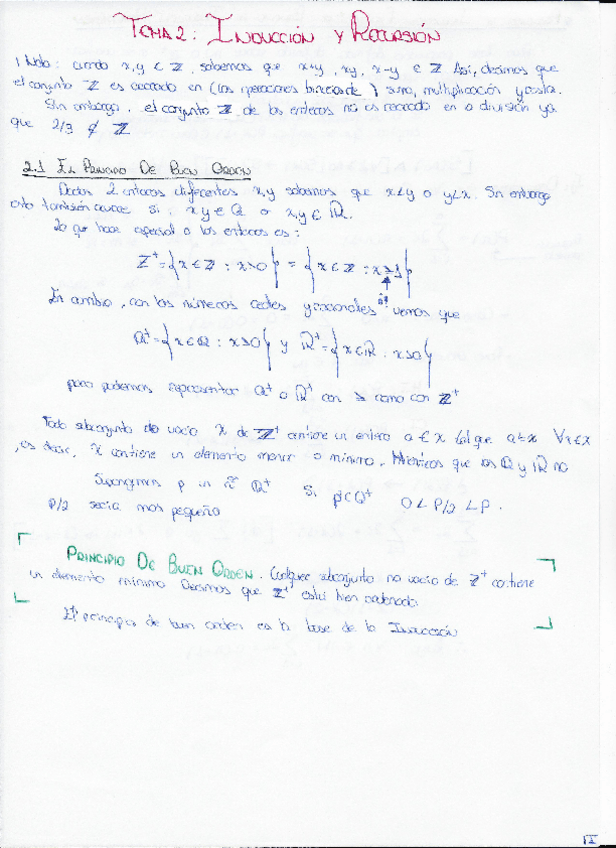 TEMA 2: INDUCCIÓN Y RECURSIÓN
Nota: cuando x, y ∈ ℤ, sabemos que x+y, xy, x-y ∈ ℤ Así, decimos que
el conjunto ℤ es cerrado en (las operaciones binarias de) suma, multiplicación y resta.
Sin embargo, el conjunto ℤ de los enteros no es cerrado en a división ya
que 2/3 ∉ ℤ
2.1 EL PRINCIPIO DE BUEN ORDEN
Dados 2 enteros diferentes x, y sabemos que x<y o y<x. Sin embargo
esto también ocurre si x, y ∈ Q o x, y ∈ ℝ.
Lo que hace especial a los enteros es:
ℤ⁺ = {x ∈ ℤ : x>0} = {x ∈ ℤ : x≥1}
En cambio, con los números reales y racionales vemos que
Q⁺ = {x ∈ Q : x>0} y ℝ⁺ = {x ∈ ℝ : x>0}
pero podemos representar Q⁺ o ℝ⁺ con ≥ como con ℤ⁺
Todo subconjunto no vacío X de ℤ⁺ contiene un entero a ∈ X tal que a≤x ∀x∈X
, es decir, X contiene un elemento menor o mínimo. Mientras que en Q y ℝ no
Supongamos p un Q⁺ Si p∈Q⁺ 0<P/2<P.
p/2 sería mas pequeño
PRINCIPIO DE BUEN ORDEN. Cualquier subconjunto no vacío de ℤ⁺ contiene
un elemento mínimo Decimos que ℤ⁺ está bien ordenado
El principio de buen orden es la base de la Inducción